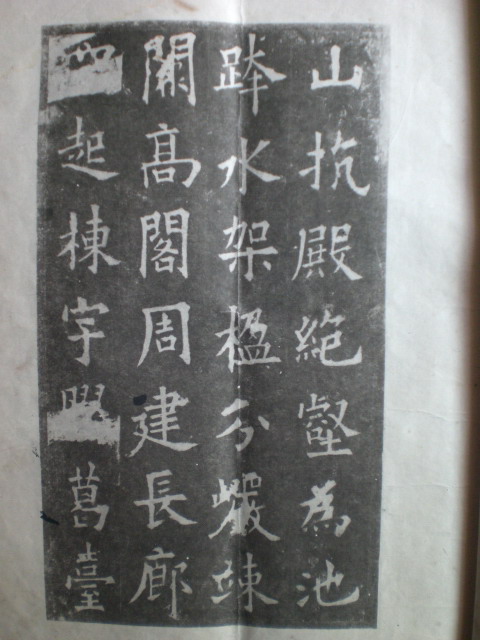 山抗殿絶壑為池
跨水架楹分巖竦
闕髙閣周建長廊
四起棟宇葛臺